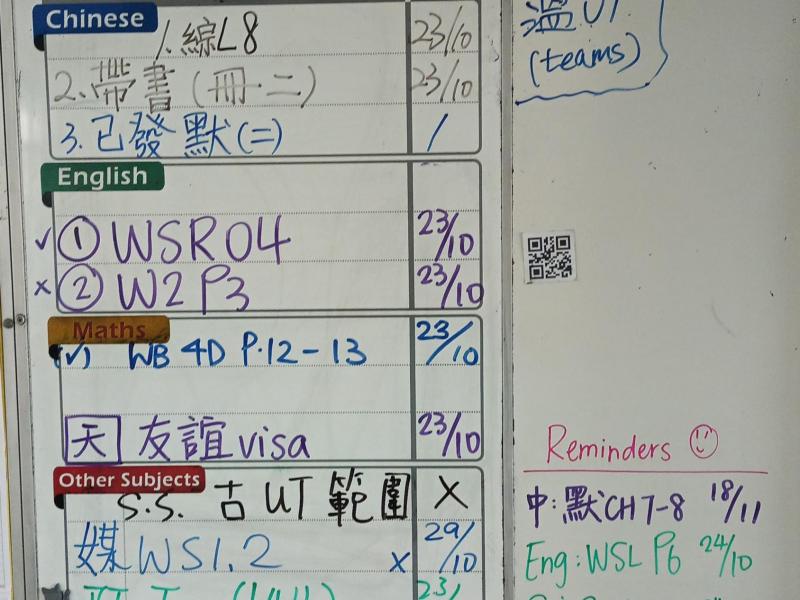 Chinese
1. 綜L8 23/10
2. 帶書(冊.二) 23/10
3. 已發默(二) /
English
✓ ① WSR04 23/10
x ② W2 P3 23/10
Maths
(✓) WB 4D P.12-13 23/10
天 友誼visa 23/10
Other Subjects
S.S. 古 UT 範圍 X
媒WS1.2 x 29/10
UT
(teams)
Reminders ☺
中:默CH7-8 18/11
Eng:WSL P6 24/10